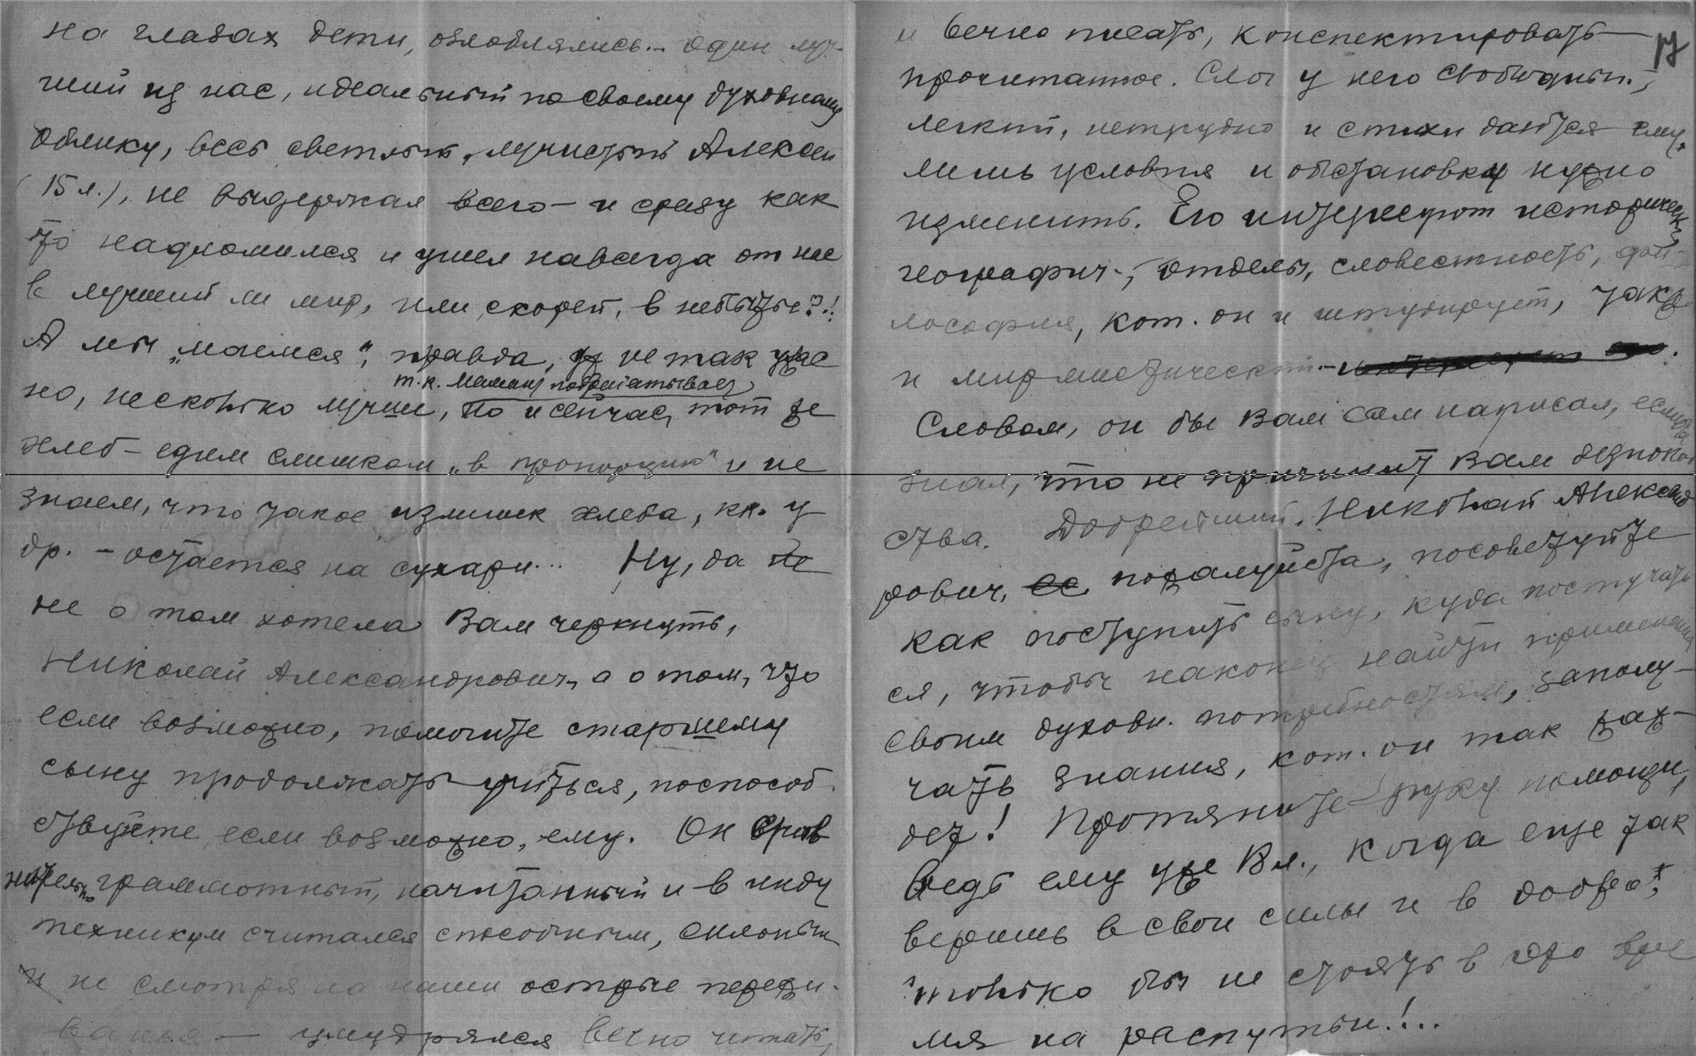 на глазах дети, озлоблялись.. один луч-
ший из нас, идеальный по своему духовному
облику, весь светлый, лучистый Алексей
(15 л.), не выдержал всего – и сразу как
то надломился и ушел навсегда от нас
в лучший ли мир, или, скорей, в небытье?!
А мы „маемся“, правда, не так уже
т.к. мамаш подрабатывает
но, несколько лучше, но и сейчас, тот же
хлеб – едим слишком „в пропорцию“ и не
знаем, что такое излишек хлеба, кк. у
др. – остается на сухари... Ну, да не
не о том хотела Вам черкнуть,
Николай Александрович, а о том, что
если возможно, помогите старшему
сыну продолжать учиться, поспособ-
ствуйте, если возможно, ему. Он срав
нительно грамотный, начитанный и в инду
техникум считался способным, склонным
и не смотря на наши острые пережи-
вания – умудрялся вечно читать,
17
и вечно писать, конспектировать
прочитанное. Слог у него свободный,
легкий, нетрудно и стихи даются ему,
лишь условия и обстановку нужно
изменить. Его интересуют историческ.
географич., отделы, словестность, фи-
лософия, кот. он и штудирует, также
и мир мистический
Словом, он бы Вам сам написал, если б
знал, что не причинит Вам беспокой
ства. Добрейший, Николай Александ
рович, пожалуйста, посоветуйте
как поступить сыну, куда постучать
ся, чтобы наконец найти применение
своим духовн. потребностям, заполу-
чать знания, кот. он так жаж-
дет! Протяните руку помощи,
Ведь ему уже 18 л., когда еще так
веришь в свои силы и в добро!
только бы не стоять в это вре
мя на распутьи!...